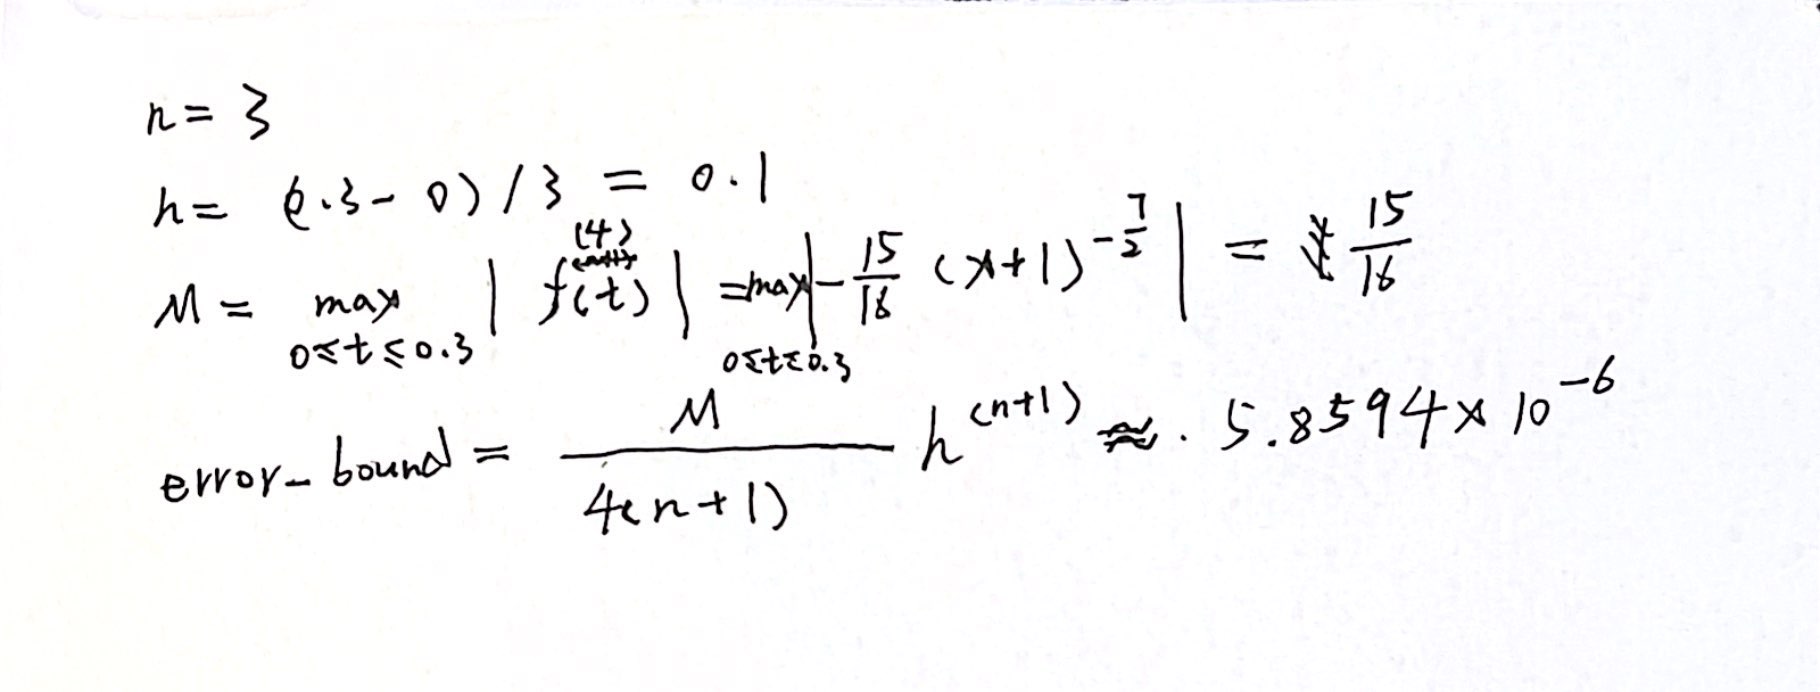 n = 3
h = (0.3 - 0) / 3 = 0.1
M = max 0≤t≤0.3 | f^(4)(t) | = max 0≤t≤0.3 | - 15/16 (x+1)^(-7/2) | = 15/16
error_bound = M / 4(n+1) h^(n+1) ≈ 5.8594 × 10^-6